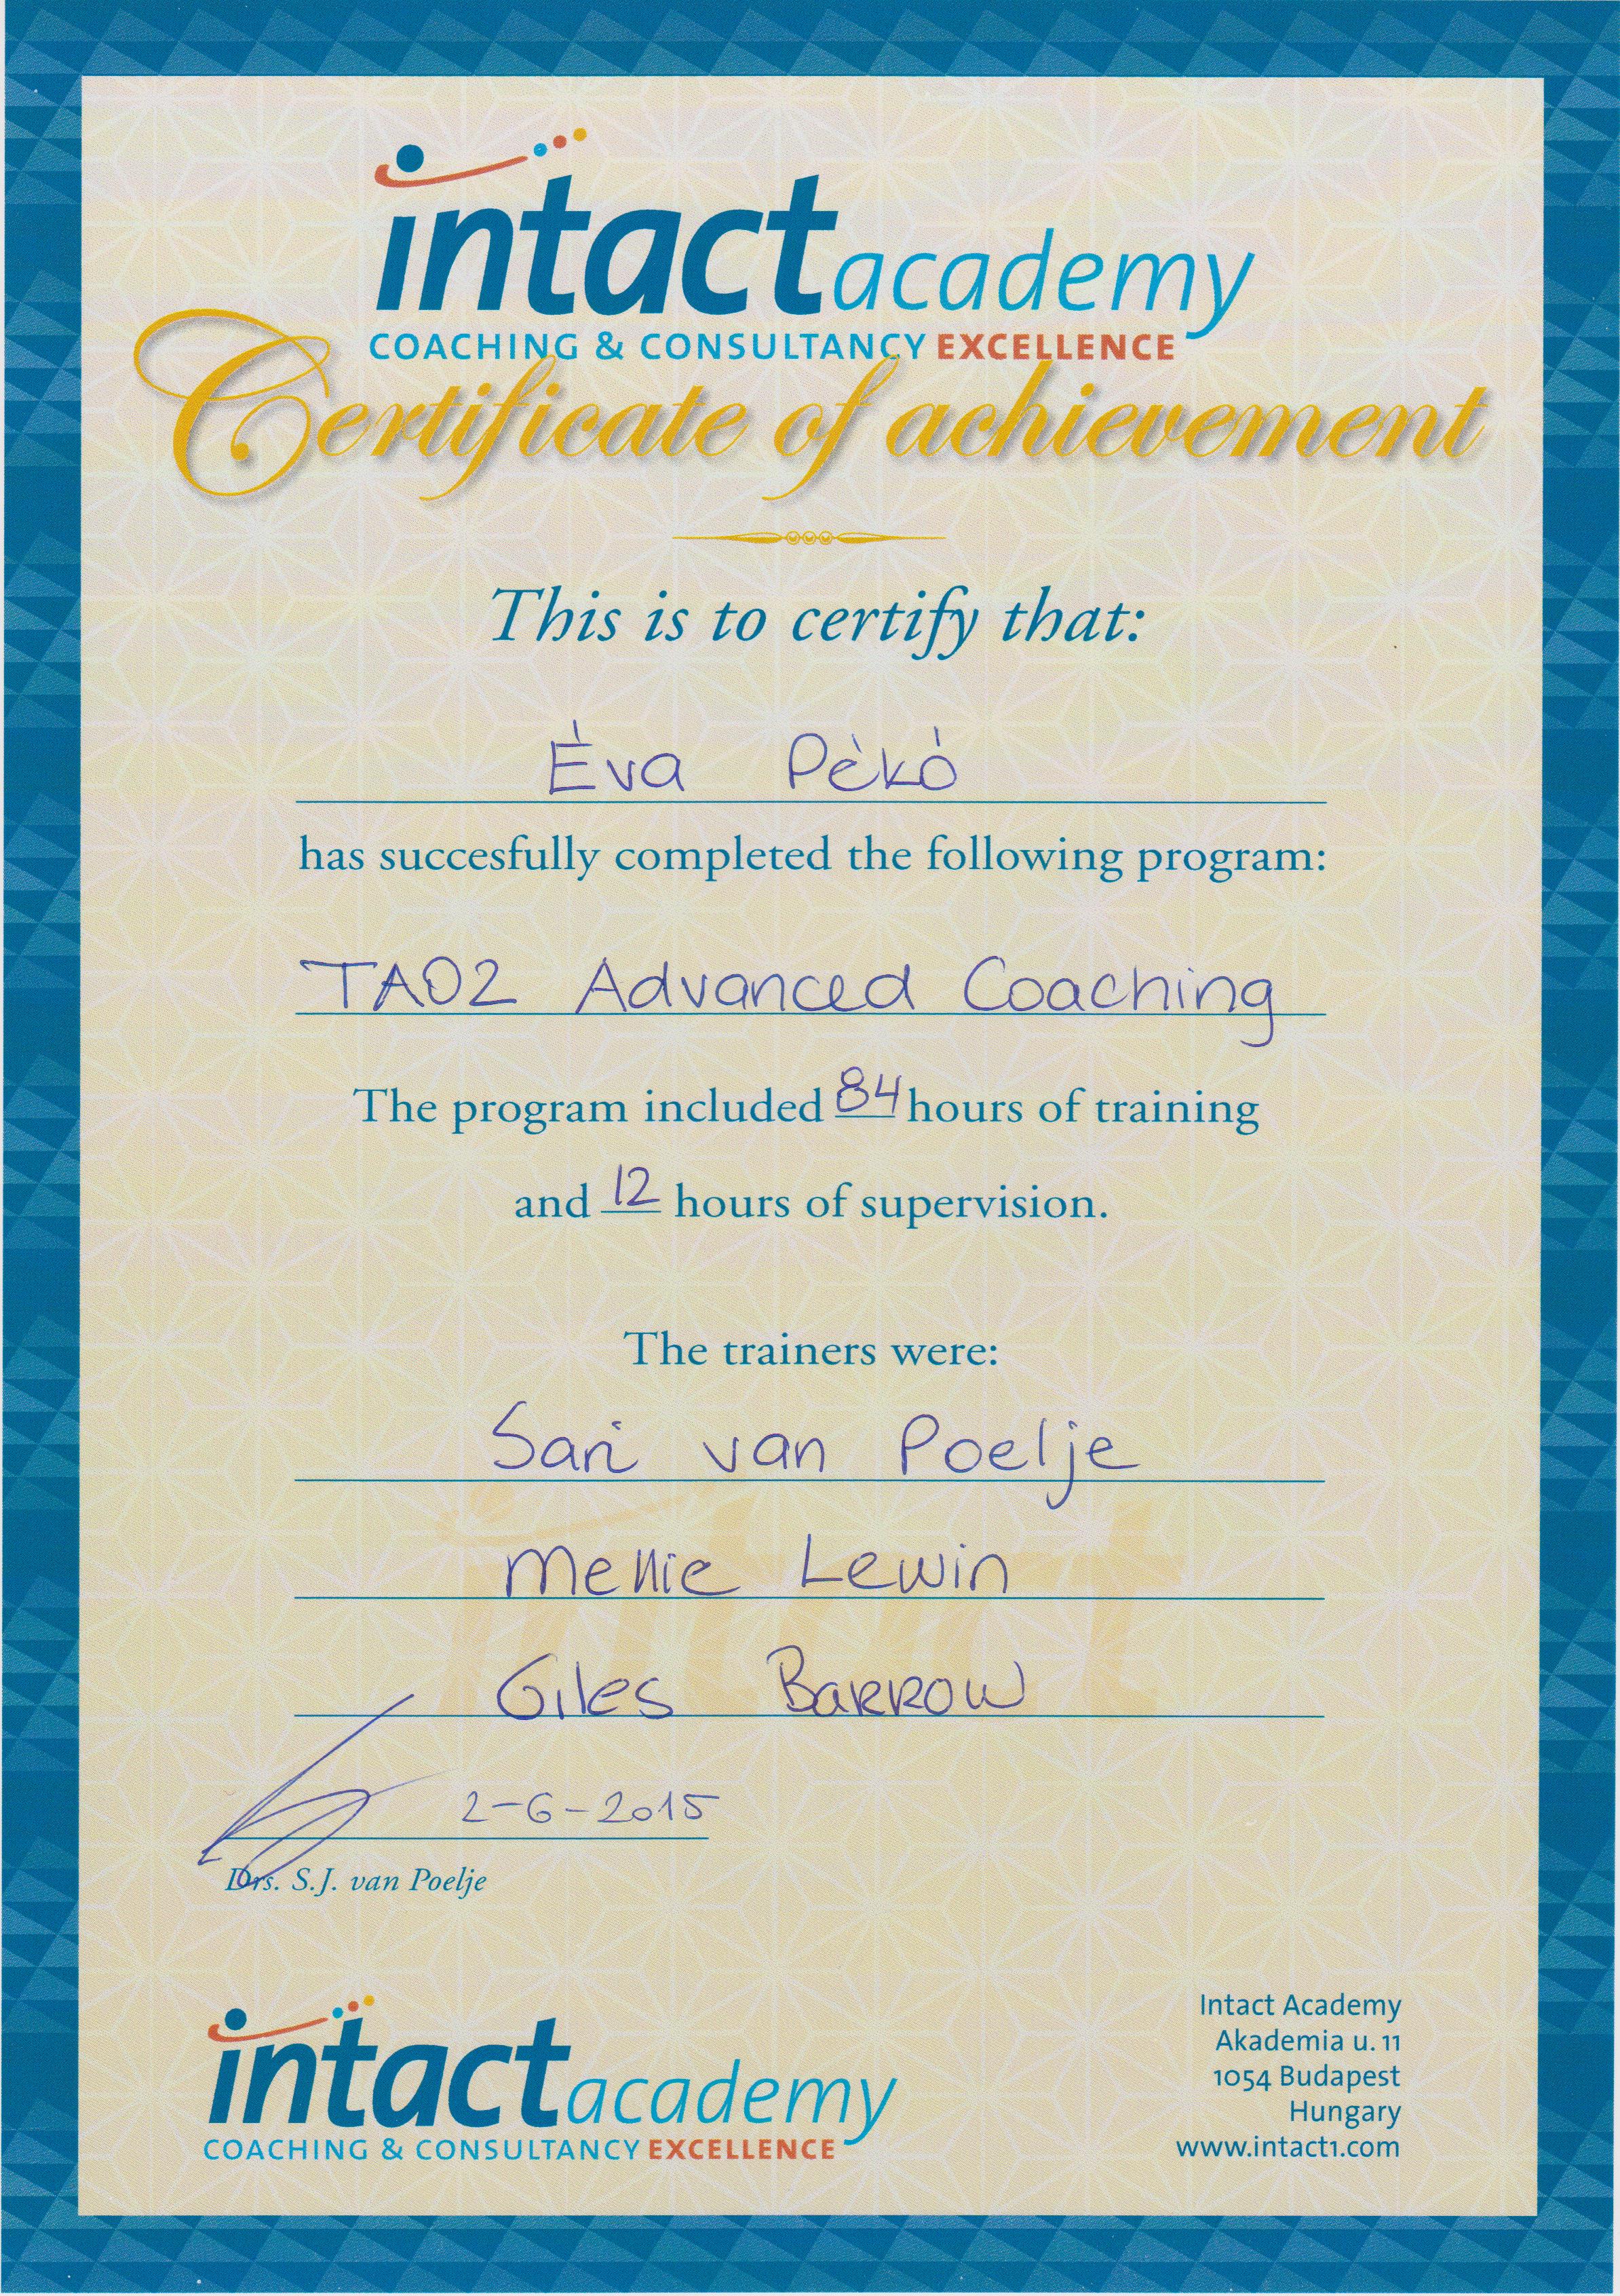 intact academy
COACHING & CONSULTANCY EXCELLENCE
Certificate of achievement
This is to certify that:
Éva Pèkò
has succesfully completed the following program:
TA02 Advanced Coaching
The program included 84 hours of training
and 12 hours of supervision.
The trainers were:
Sari van Poelje
intact
Mellie Lewin
Giles Barrow
2-6-2015
Drs. S.J. van Poelje
intact academy
COACHING & CONSULTANCY EXCELLENCE
Intact Academy
Akademia u. 11
1054 Budapest
Hungary
www.intact1.com